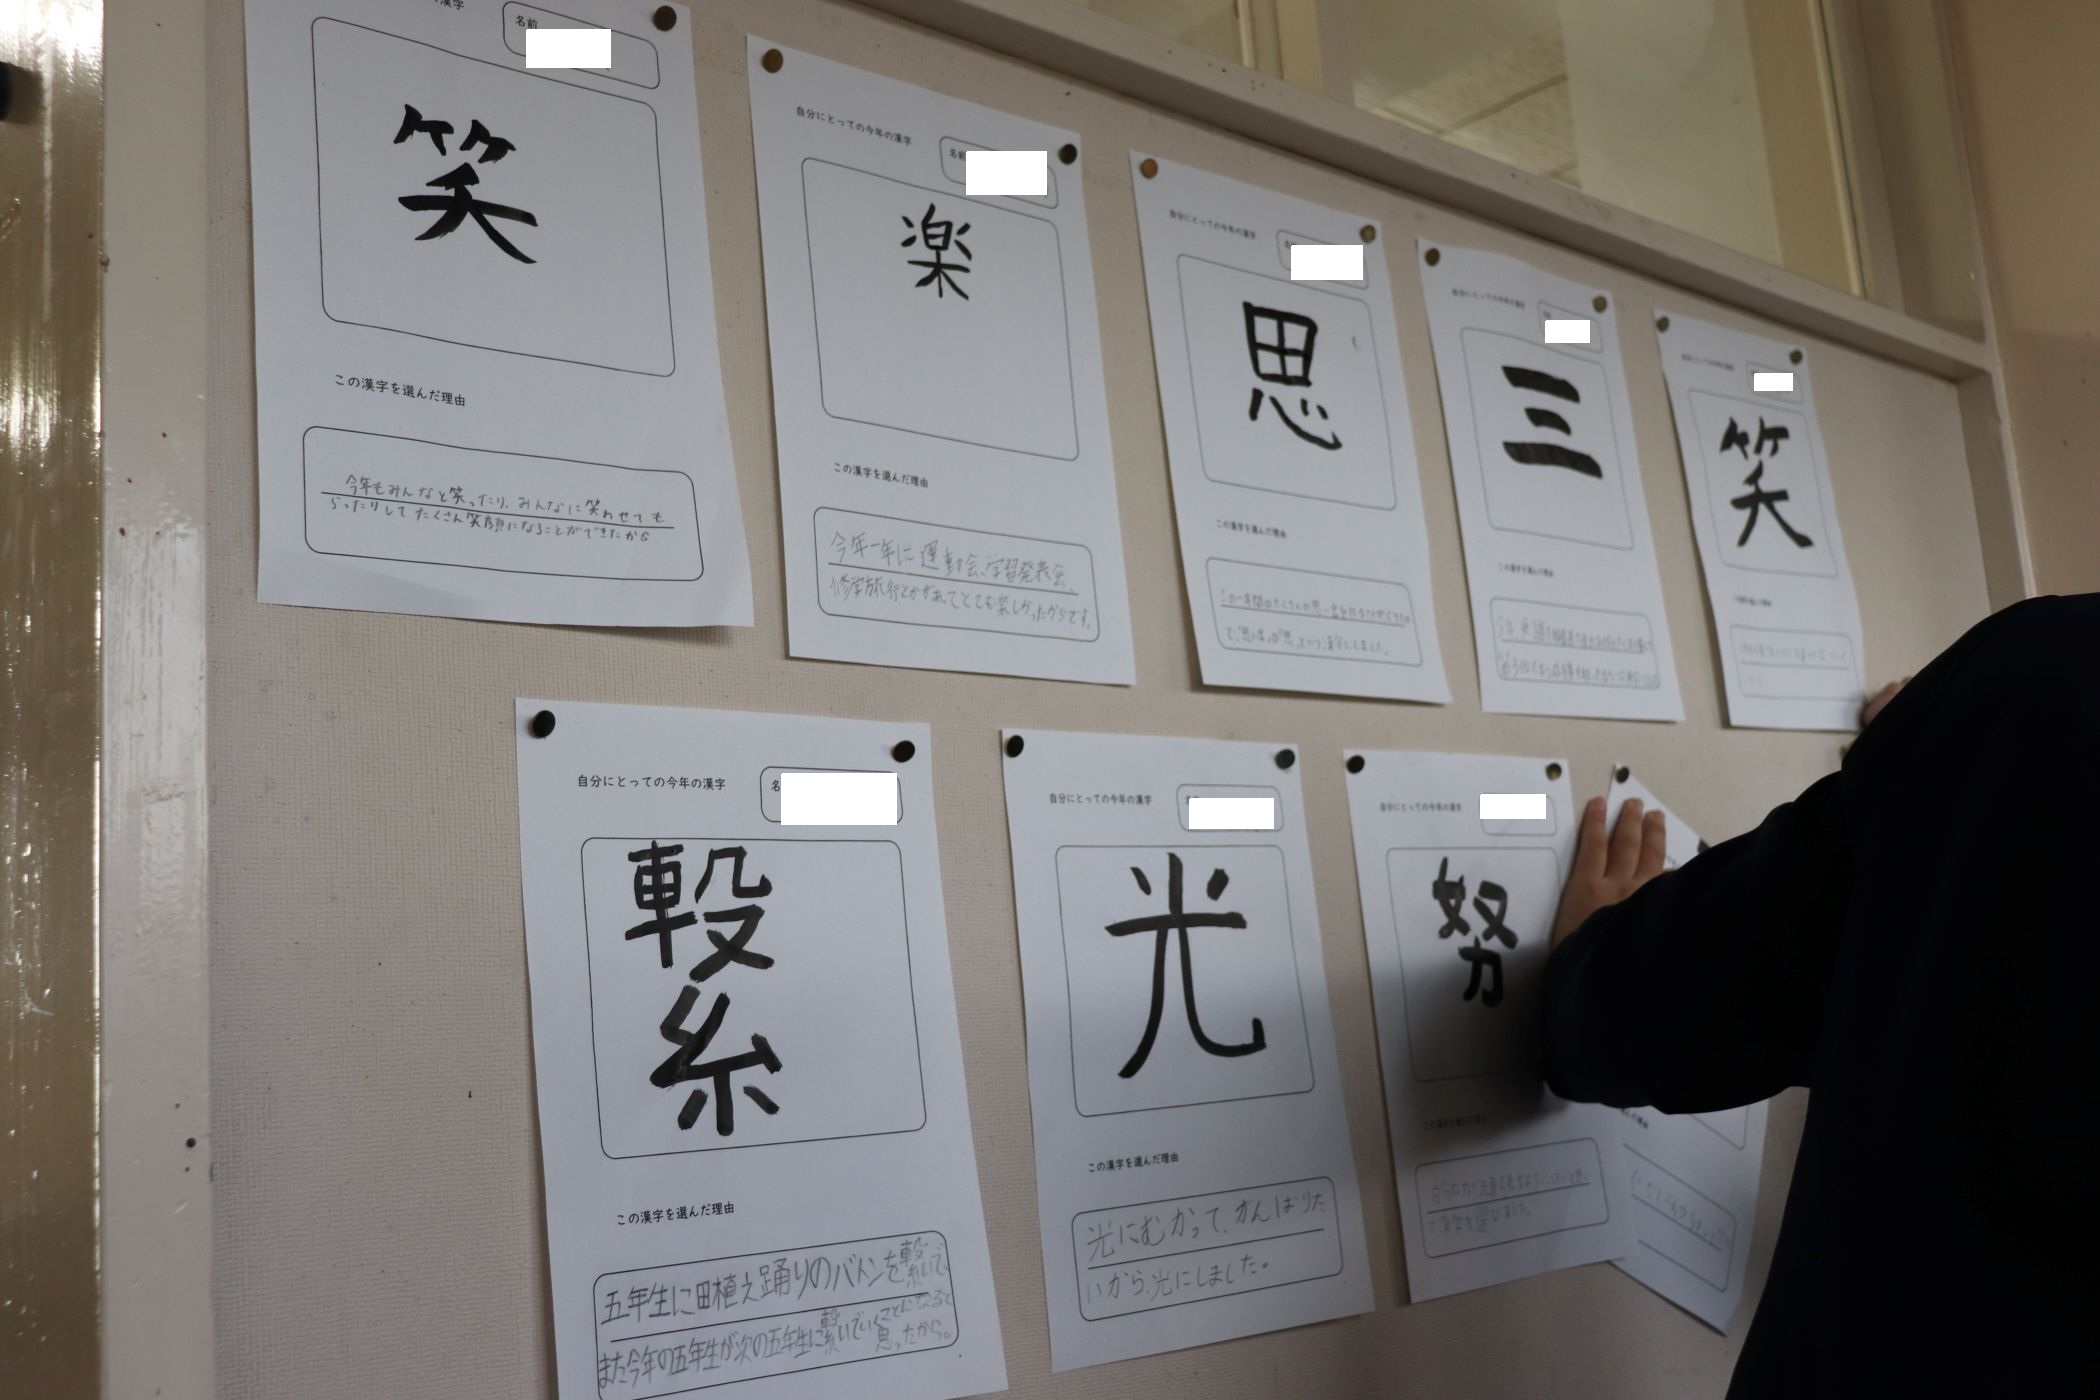 の漢字
名前
笑
この漢字を選んだ理由
今年もみんなと笑ったり、みんなに笑わせても
らったりしてたくさん笑顔になることができたから
自分にとっての今年の漢字
名前
楽
この漢字を選んだ理由
今年一年に運動会、学習発表会、
修学旅行とかがあってとても楽しかったからです。
自分にとっての今年の漢字
思
この漢字を選んだ理由
この一年間のたくさんの思い出を作ることができたの
で、「思い出」の「思」という漢字にしました。
自分にとっての今年の漢字
三
この漢字を選んだ理由
自分にとっての今年の漢字
笑
この漢字を選んだ理由
自分にとっての今年の漢字
名
繋
この漢字を選んだ理由
五年生に田植え踊りのバトンを繋いで、
また今年の五年生が次の五年生に繋いでいくことになると
思ったから。
自分にとっての今年の漢字
光
この漢字を選んだ理由
光にむかって、がんばりた
いから、光にしました。
自分にとっての今年の漢字
努
この漢字を選んだ理由
漢字を選びました。
んだ理由